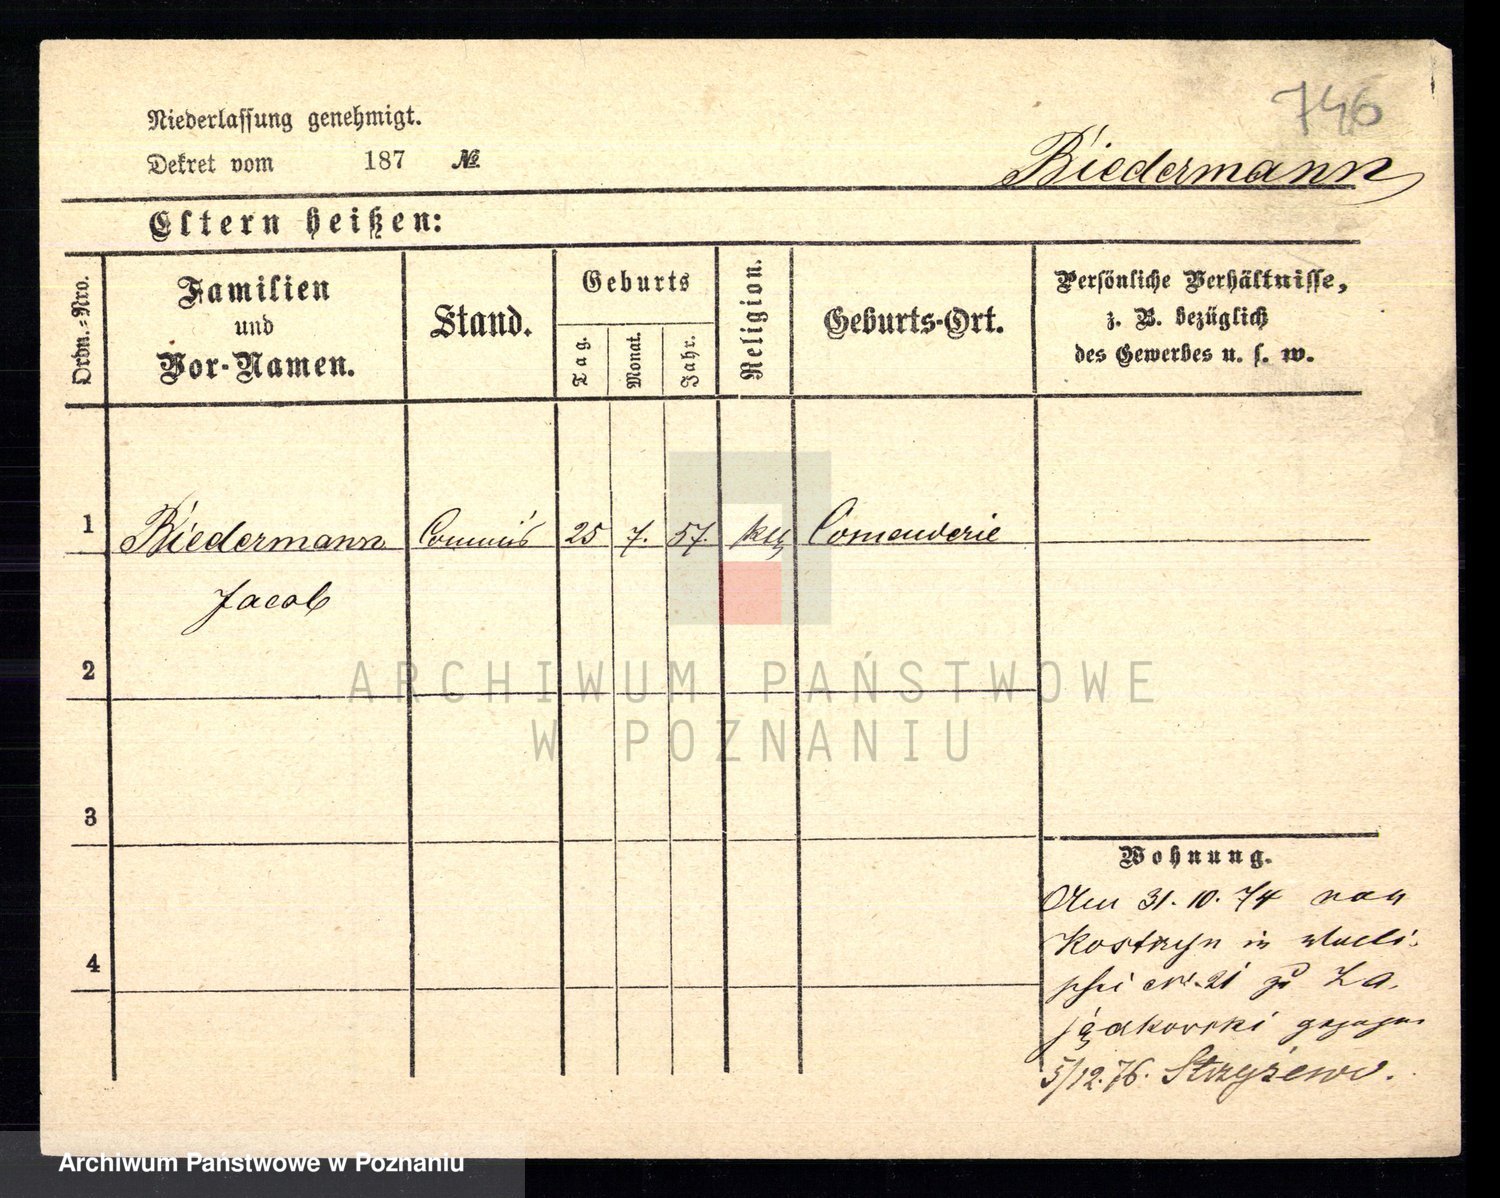 746
Niederlassung genehmigt.
Dekret vom 187 №
Biedermann
Eltern heißen:
Ordn.-Nro.
Familien
und
Vor-Namen.
Stand.
Geburts
Tag.
Monat.
Jahr.
Religion.
Geburts-Ort.
Persönliche Verhältnisse,
z. B. bezüglich
des Gewerbes u. s. w.
1 Biedermann Commis 25 7. 57. kth Comenderie
Jacob
2
3
4
Wohnung.
Am 31. 10. 74 von
Kostrzyn in
Nr. 21 zu Za-
jądkowski gezogen
5/12. 76. Strzyżewo.
ARCHIWUM PAŃSTWOWE
W POZNANIU
Archiwum Państwowe w Poznaniu